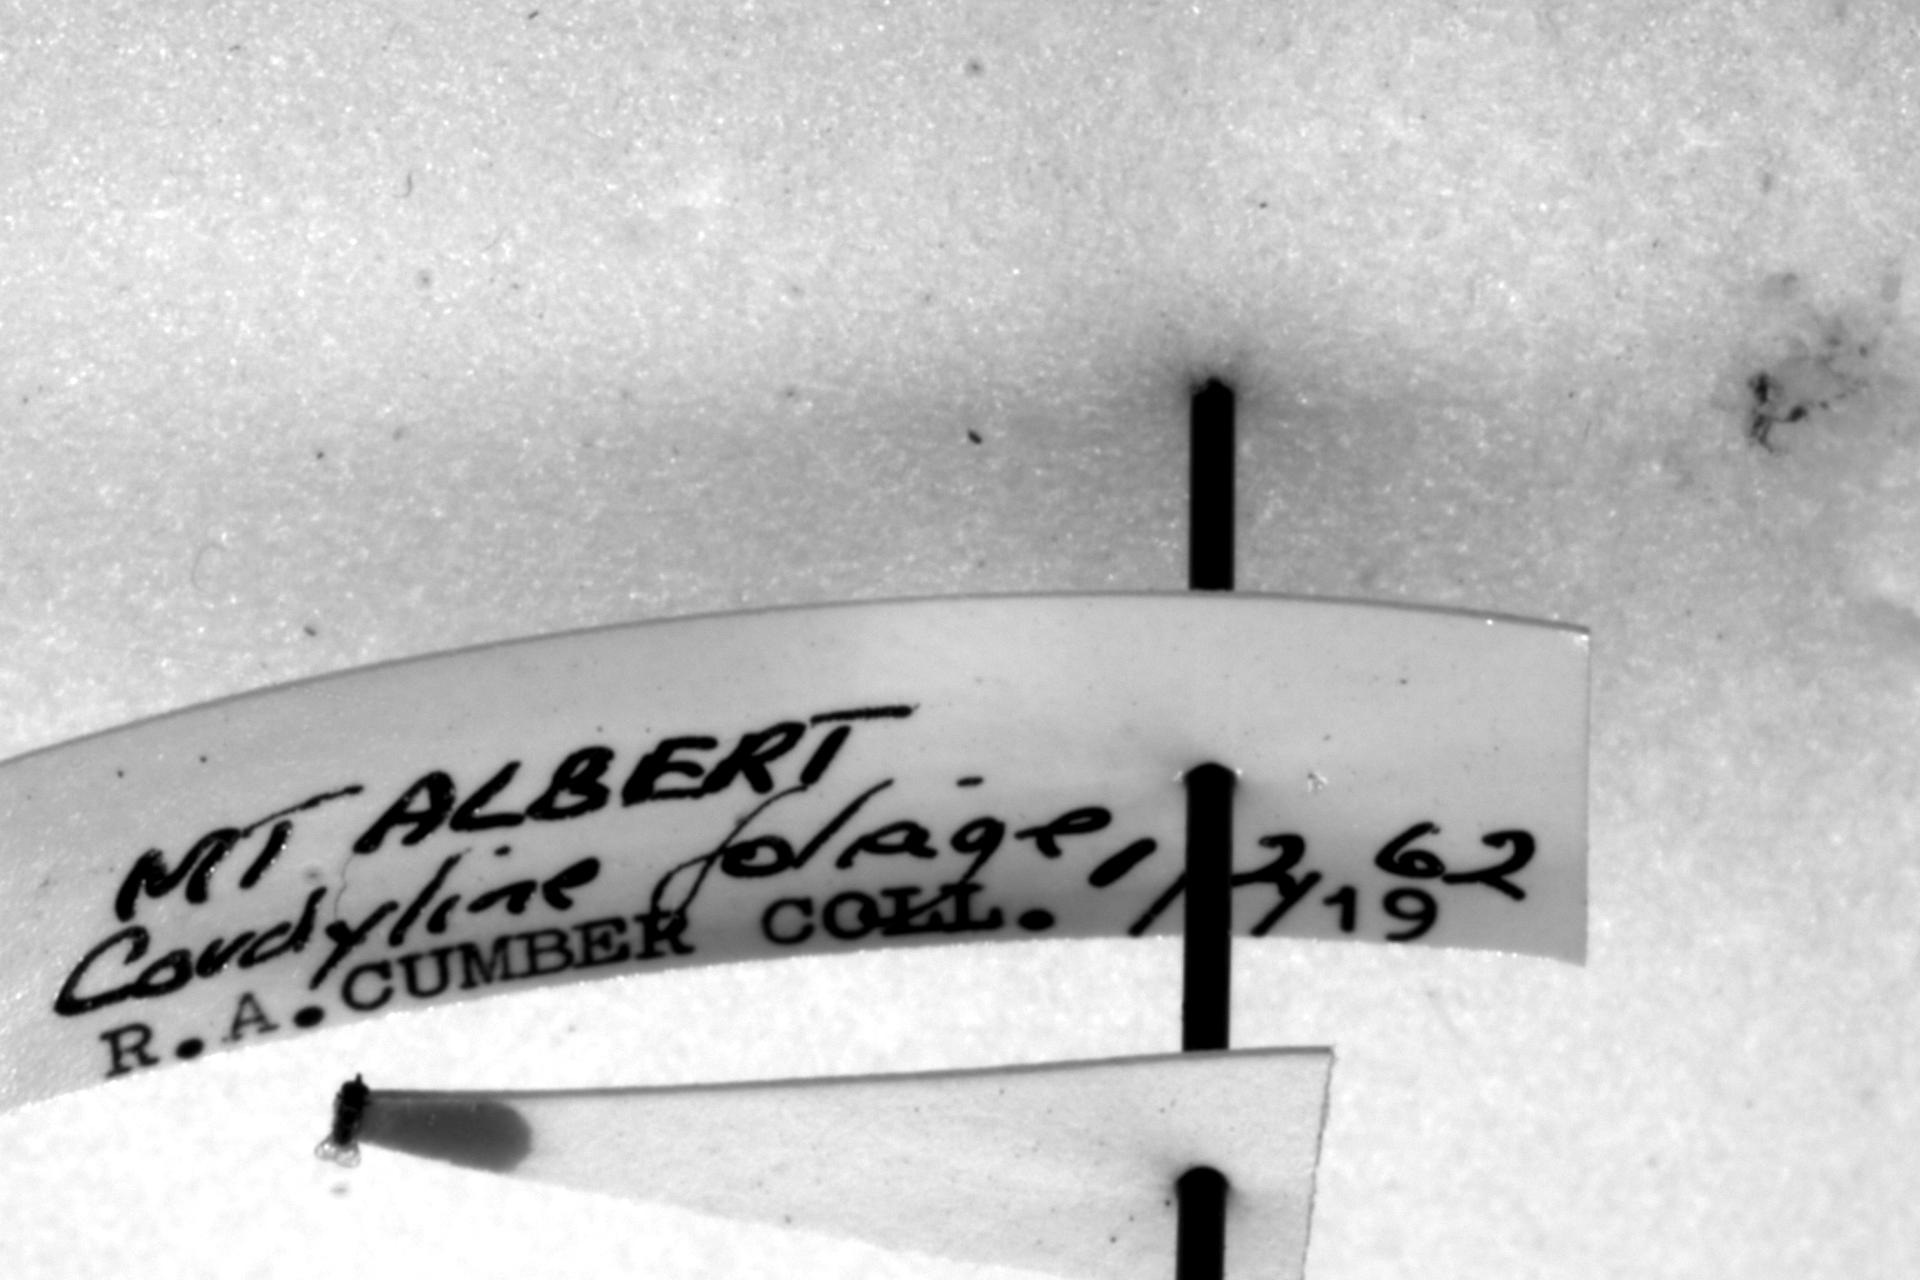 MT ALBERT
Cordyline foliage, 1/2/62
R.A.CUMBER COLL. 19